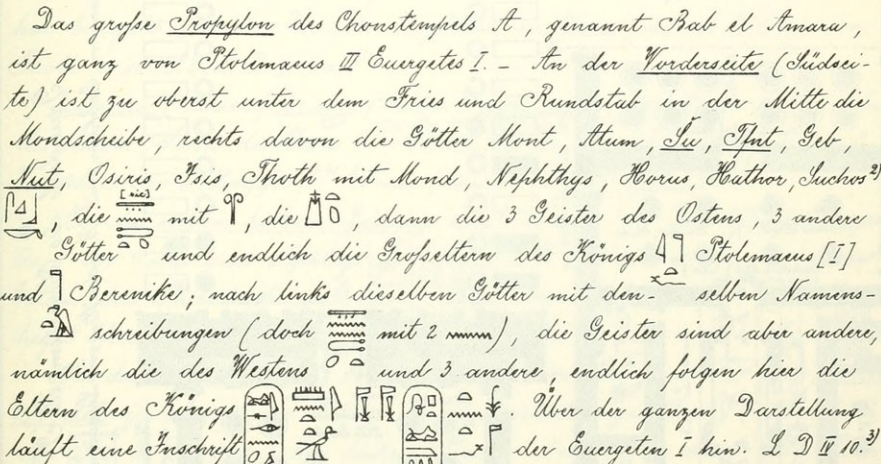 Das große Propylon des Chonstempels A, genannt Bab el Amara,
ist ganz von Ptolemaeus III Euergetes I. – An der Vorderseite (Südsei-
te) ist zu oberst unter dem Fries und Rundstab in der Mitte die
Mondscheibe, rechts davon die Götter Mont, Atum, Šu, Tfnt, Geb,
Nut, Osiris, Isis, Thoth mit Mond, Nephthys, Horus, Hathor, Suchos²⁾
, die [sic] mit , die , dann die 3 Geister des Ostens, 3 andere
Götter und endlich die Großeltern des Königs Ptolemaeus [I]
und Berenike; nach links dieselben Götter mit den- selben Namens-
schreibungen (doch mit 2 ), die Geister sind aber andere,
nämlich die des Westens und 3 andere, endlich folgen hier die
Eltern des Königs . Über der ganzen Darstellung
läuft eine Inschrift der Euergeten I hin. L D IV 10.³⁾